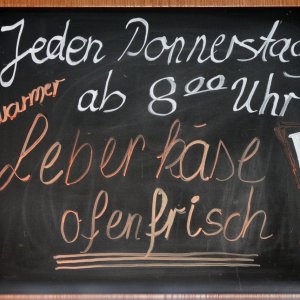 Jeden Donnerstag
ab 8ºº Uhr
warmer
Leberkäse
ofenfrisch